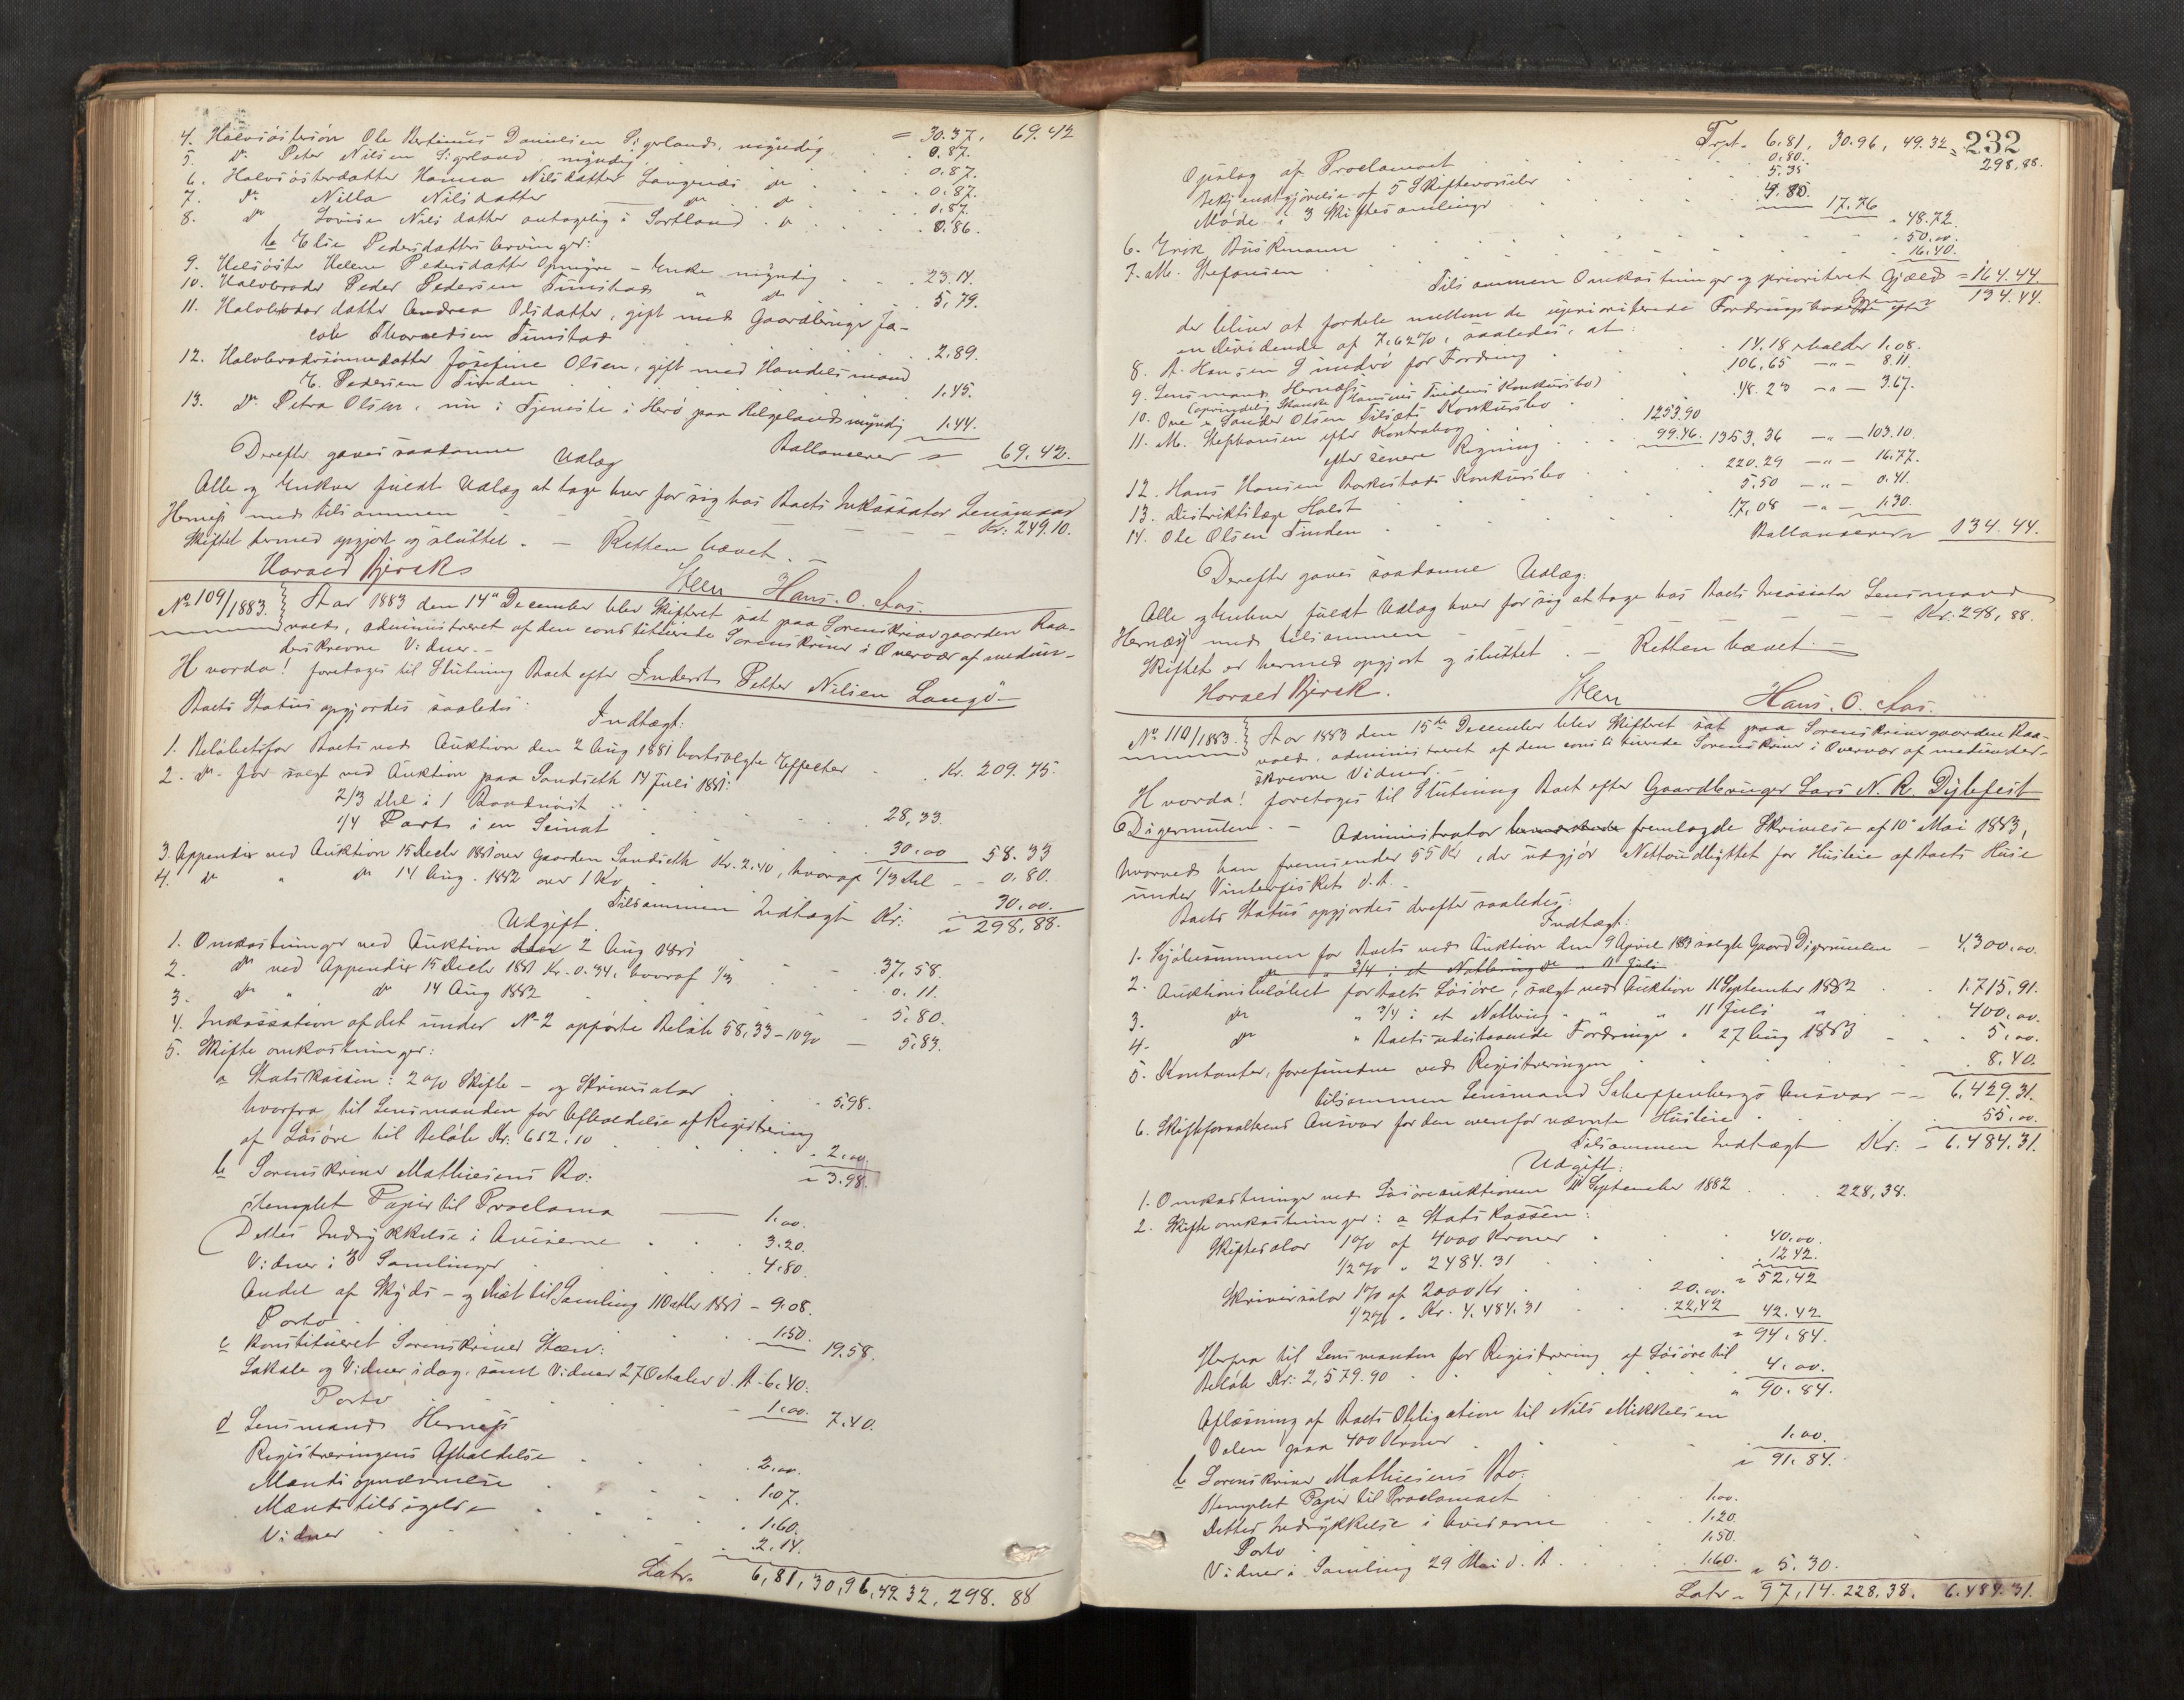 4. Halvsøstersøn Ole Bertinus Danielsen Sigerland, myndig = 30.37. 69.42
5. Do Peter Nilsen Sigerland, myndig . 0.87.
6. Halvsøsterdatter Hanna Nilsdatter Langenæs do . 0.87.
7. Do Nilla Nilsdatter do . 0.87.
8. do Lovise Nilsdatter antagelig i Sortland . do . 0.87.
0.86.
b Elie Pedersdatters Arvinger:
9. Helsøster Helene Pedersdatter Opmyre - Enke myndig . 23.14.
10. Halvbroder Peder Pedersen Tunstad " do . 5.79.
11. Halvbroder datter Andrea Olsdatter, gift med Gaardbruger Ja-
cob Tunstad . 2.89.
12. Halvbrodersønnedatter Josefine Olsen, gift med Handelsmand
E. Pedersen Tinden . 1.45.
13. Do Petra Olsen, nu i Tjeneste i Herø paa Helgeland myndig 1.44.
Ballancerer = 69.42.
Derefter gaves saadanne Udlæg
Alle og Enhver fuldt Udlæg at tage hver for sig hos Boets Inkassator Lensmand
Hernæs med tilsammen - - - - Kr: 249.10.
Skiftet hermed opgjort og sluttet. - Retten hævet. -
Harald Bjerck Steen Hans. O. Aas.
No 109/1883. Aar 1883 den 14de December blev Skifteret sat paa Sorenskrivergaarden Raa-
vold, administreret af den constituerede Sorenskriver i Overvær af medun-
derskrevne Vidner. -
Hvorda! foretoges til Slutning Boet efter Inderst Petter Nilsen Langø -
Boets Status opgjordes saaledes:
Indtægt:
1. Beløbet for Boets ved Auktion den 2 Aug 1881 bortsolgte Effecter . Kr. 209.75.
2. do for solgt ved Auktion paa Sandseth 14 Juli 1881:
2/3 del i 1 Baadnøst . 28,33.
1/4 Part i en Seinot . 30.00 58.33
3. Appendix ved Auktion 15 Decbr 1881 over Gaarden Sandseth Kr. 2.40, hvoraf 1/3 del - - 0.80.
4. do " do 14 Aug. 1882 over 1 Ko . 30.00.
Tilsammen Indtægt Kr: = 298,88.
Udgift.
1. Omkostninger ved Auktion 2 Aug 1881 . 37,58.
2. do ved Appendix 15 Decbr 1881 Kr. 0.34, hvoraf 1/3 . 0.11.
3. do " do 14 Aug 1882 . 5.80.
4. Inkassation af det under No 2 opførte Beløb 58,33 - 10% — 5.83.
5. Skifteomkostninger:
a Statskassen: 2% Skifte- og Skriversalar . 5.98.
hvorfra til Lensmanden for Afholdelse af Registrering
af Løsøre til Beløb Kr: 612.10 . 2.00.
= 3.98.
b Sorenskriver Mathiesens Bo:
stemplet Papir til Proclama — 1.00.
Dettes Indrykkelse i Aviserne . 3.20.
Vidner i 3 Samlinger . 4.80.
Andel af Skyds- og Diæt til Samling 11 Octbr 1881 - 9.08.
Porto . 1.50. 19.58.
c Konstitueret Sorenskriver Steen:
Lokale og Vidner idag, samt Vidner 27 October d. A. 6.40.
Porto . 1.00. 7.40.
d Lensmand Hernæs
Registreringens Afholdelse . 2.00.
Mænds opnævnelse . 1.07.
Mænds tilsigelse . 1.60.
Vidner . 2.14.
Latr. 6,81, 30,96, 49.32, 298.88
232
Trpt. 6.81, 30.96, 49.32 = 298,88.
Opslag af Proclamaet . 0.80.
Bekjendtgjørelse af 5 Skiftevarsler . 5.35
Møde i 3 Skiftesamlinger . 4.80. 17.76 = 48.72
6. Erik Buskmann . 50.00.
7. M. Stefansen . 16.40.
Tilsammen Omkostninger og prioriteret Gjæld = 164.44.
134.44.
der bliver at fordele mellem de uprioriterede Fordringshavere efter
en Dividende af 7.62%, saaledes, at:
8. A. Hansen Gundrø for Fordring . 14.18 erholder 1.08.
9. Lensmand Hernæs . 106,65 —"— 8.11.
(oprindelig Hansens Tindens Konkursbo)
10. Ove Sander Olsen Tilsæts Konkursbo . 48.23 —"— 3.67.
11. M. Stephansen efter Kontrabog . 1253.90
efter senere Regning . 99.46. 1353,36 —"— 103.10.
12. Hans Hansen Barkestads Konkursbo . 220.29 —"— 16.77.
13. Distriktslæge Holst . 5.50 —"— 0.41.
14. Ole Olsen Tinden . 17,08 —"— 1.30.
Ballancerer = 134.44.
Derefter gaves saadanne Udlæg:
Alle og Enhver fuldt Udlæg hver for sig at tage hos Boets Incassator Lensmand
Hernæs med tilsammen - - - - Kr: 298,88.
Skiftet er hermed opgjort og sluttet. - Retten hævet. -
Harald Bjerck. Steen Hans. O. Aas.
No 110/1883. Aar 1883 den 15de December blev Skifteret sat paa Sorenskrivergaarden Raa-
vold, administreret af den constituerede Sorenskriver i Overvær af medunder-
skrevne Vidner. -
Hvorda! foretoges til Slutning Boet efter Gaardbruger Lars N. R. Dybfest
Digermulen. - Administrator fremlagde Skrivelse af 10de Mai 1883,
hvorved han fremsender 55 Kr, der udgjør Nettoudbyttet for Husleie af Boets Huse
under Vinterfisket d. A. -
Boets Status opgjordes derefter saaledes:
Indtægt:
1. Kjøbesummen for Boets ved Auktion den 9 April 1883 solgte Gaard Digermulen - 4,300,00.
do 3/4 i et Notbrug do 11 Juli
2. Auktionsbeløbet for Boets Løsøre, solgt ved Auktion 11 September 1882 . 1.715,91.
3. do " 3/4 i et Notbrug " " 11 Juli " . 400,00.
4. do " Boets udestaaende Fordringer " 27 Aug 1883 . 5,00.
5. Kontanter, forefundne ved Registreringen . 8.40.
tilsammen Lensmand Scheppenbergs Ansvar -- 6,429.31.
6. Skifteforvalterens Ansvar for den ovenfor nævnte Husleie . 55,00.
Tilsammen Indtægt Kr: - 6.484.31.
Udgift:
1. Omkostninger ved Løsøreauktionen 11 September 1882 . 228,38.
2. Skifteomkostninger: a Statskassen:
Skiftesalar 1% af 4000 Kroner . 40.00.
1/2% " 2484.31 . 12.42.
= 52,42
Skriversalar 1% af 2000 Kr . 20.00.
1/2% " Kr. 4.484.31 . 22.42 42.42
= 94.84.
Herfra til Lensmanden for Registrering af Løsøre til
Beløb Kr: 2,579.90 . 4.00.
" 90.84.
Aflæsning af Boets Obligation til Nils Mikkelsen
Valen paa 400 Kroner . 1.00.
= 91.84.
b Sorenskriver Mathiesens Bo:
Stemplet Papir til Proclamaet . 1.00.
Dettes Indrykkelse i Aviserne . 1.20.
Porto . 1.50.
Vidner i Samling 29 Mai d. A. . 1.60. = 5.30.
Latr = 97,14. 228,38. 6.484.31.